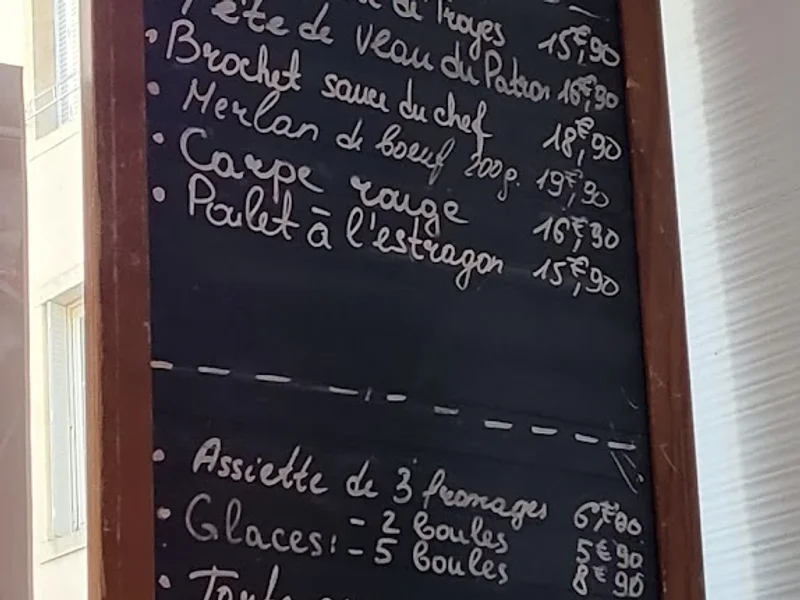 de Troyes 15€,90
Tête de veau du Patron 16€,90
• Brochet sauce du chef 18€,90
• Merlan de boeuf 200g. 19€,90
• Carpe rouge 16€,90
• Poulet à l'estragon 15€,90
• Assiette de 3 fromages 6€,00
• Glaces: - 2 boules 5€90
- 5 boules 8€90